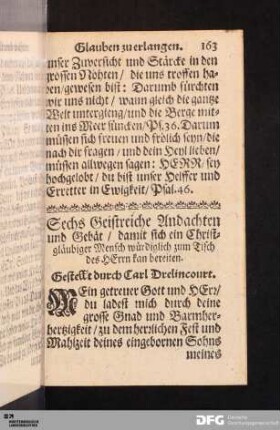 Glauben zu erlangen. 163
unser Zuversicht und Stärcke in den
grossen Nöhten / die uns troffen ha-
ben / gewesen bist: Darumb fürchten
wir uns nicht / wann gleich die gantze
Welt untergieng / und die Berge mit-
ten ins Meer süncken / Ps. 36. Darum
müssen sich freuen und frölich seyn / die
nach dir fragen / und dein Heyl lieben /
müssen allwegen sagen: HERR / sey
hochgelobt / du bist unser Helffer und
Erretter in Ewigkeit / Psal. 46.
Sechs Geistreiche Andachten
und Gebät / damit sich ein Christ-
gläubiger Mensch würdiglich zum Tisch
des HErrn kan bereiten.
Gestellt durch Carl Drelincourt.
MEin getreuer Gott und HErr /
du ladest mich durch deine
grosse Gnad und Barmher-
hertzigkeit / zu dem herrlichen Fest und
Mahlzeit deines eingebornen Sohns
meines
DFG